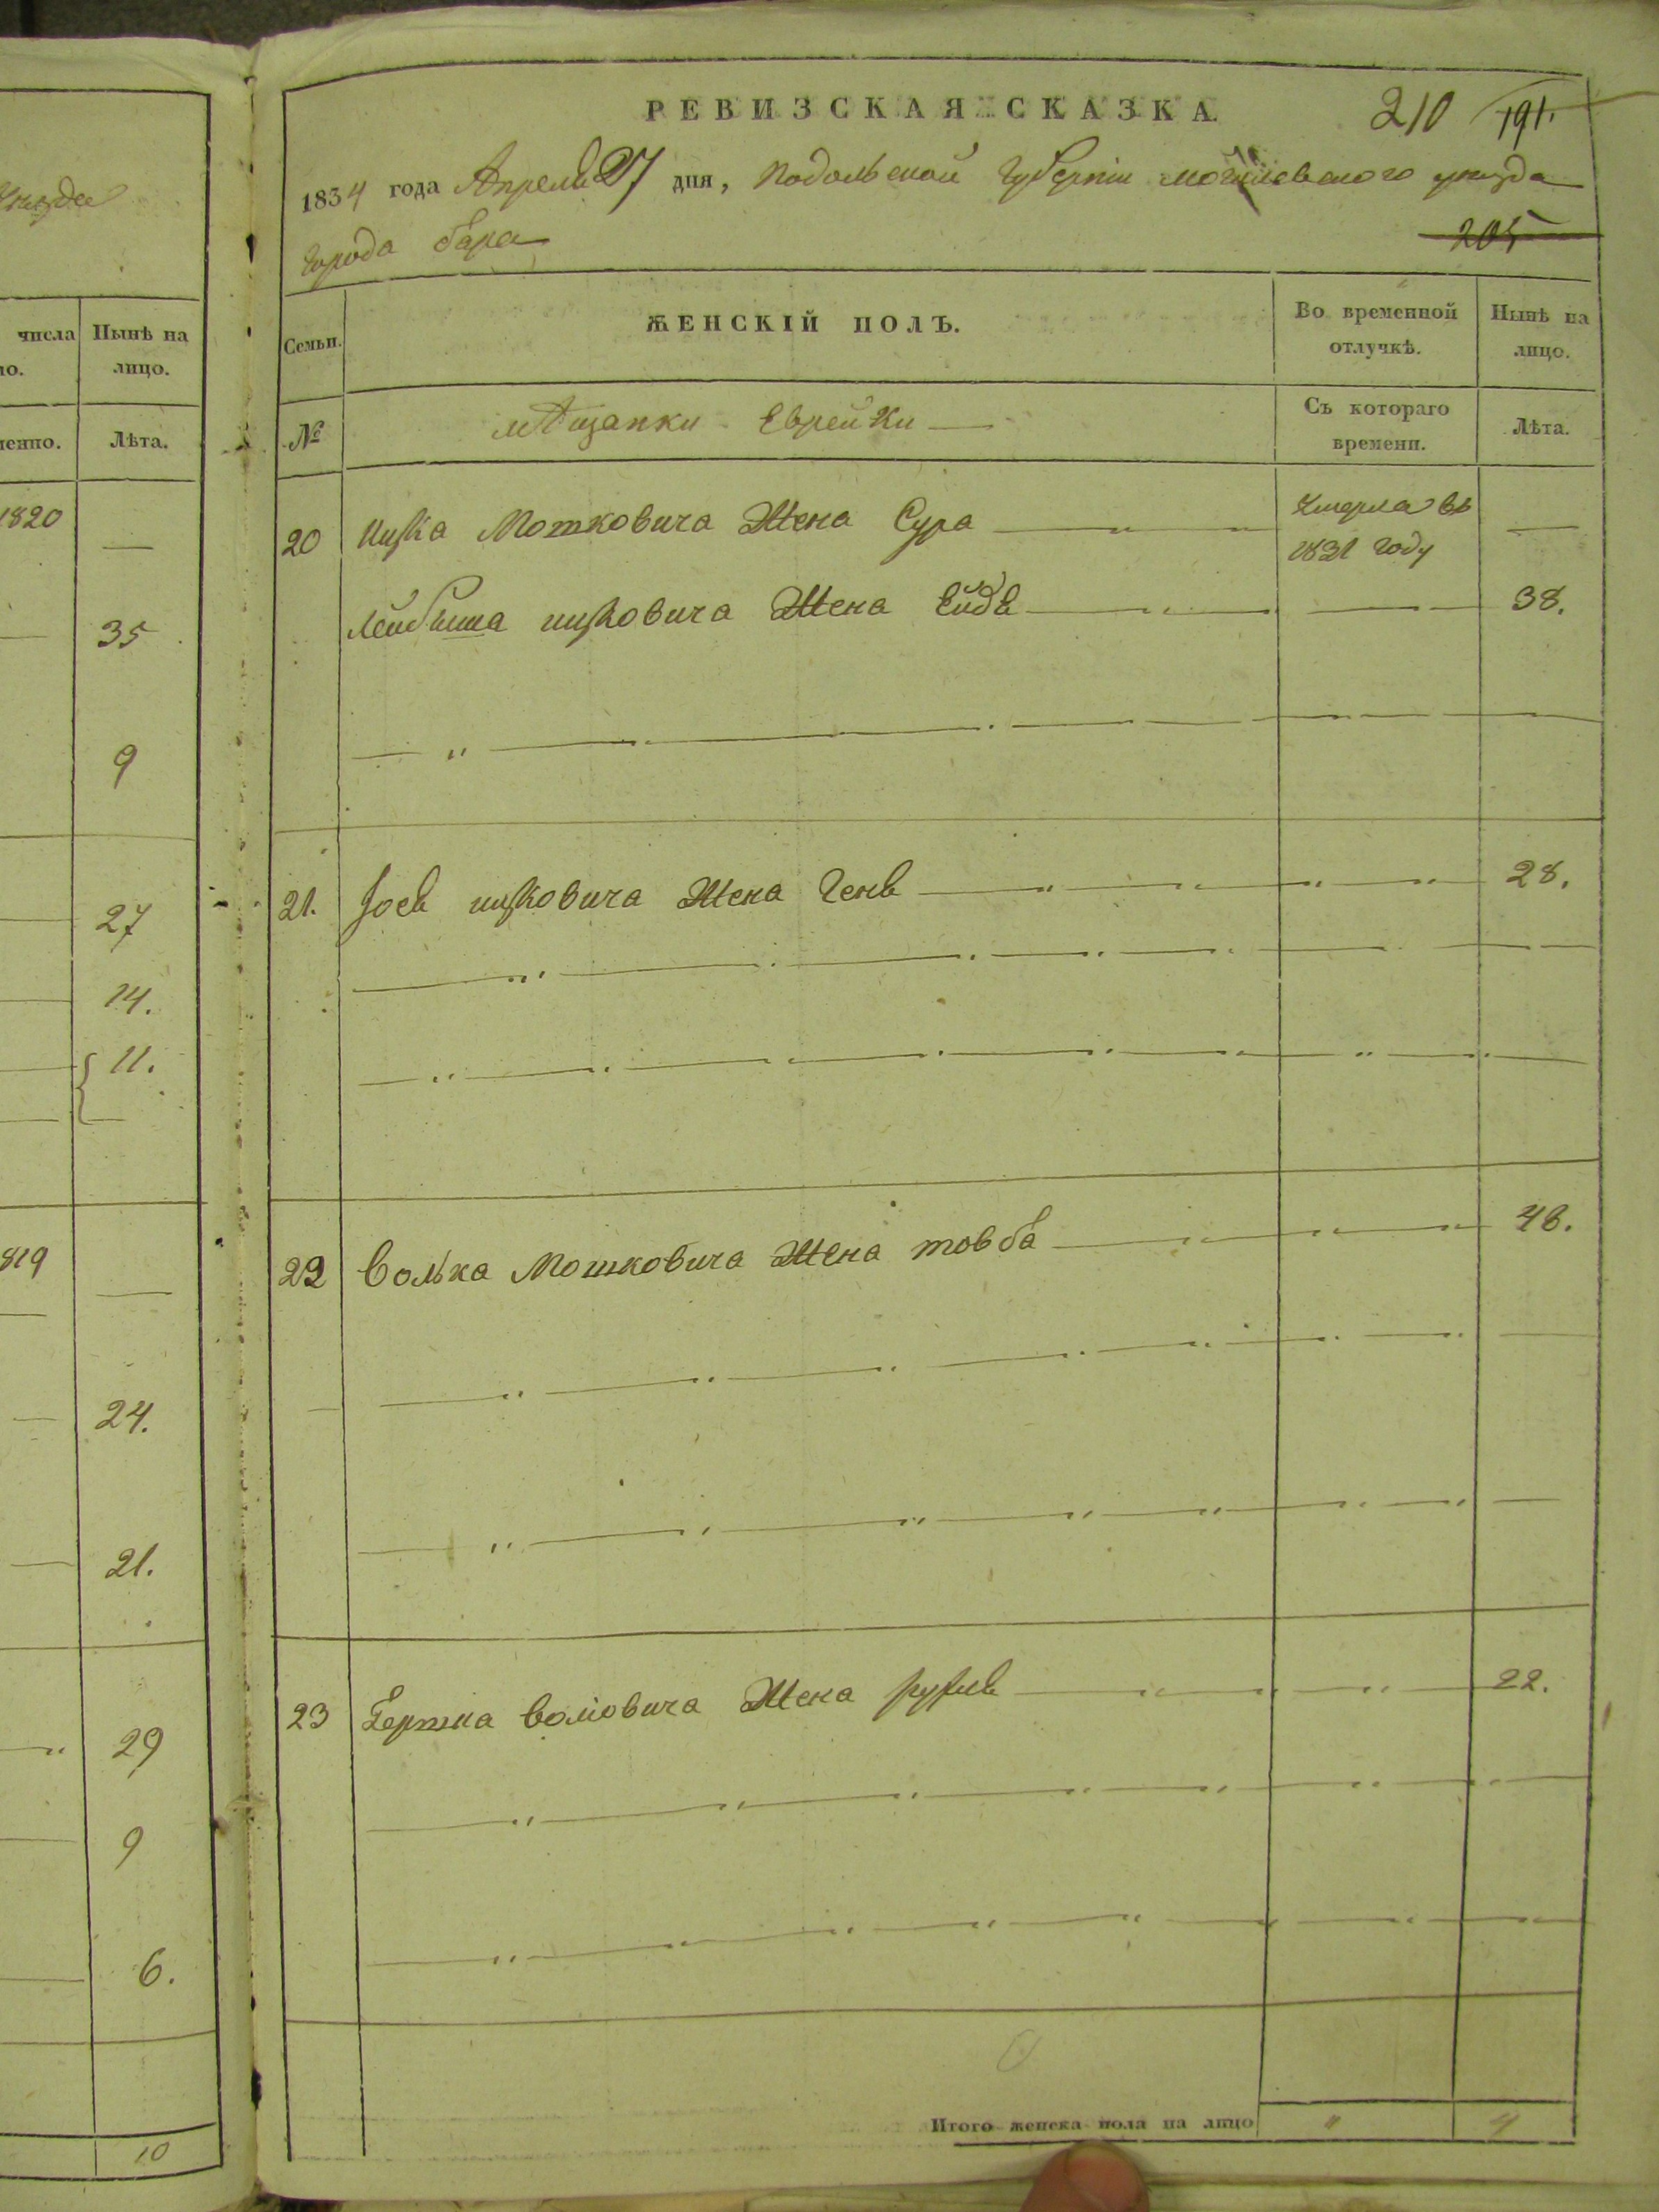 уѣзда
числа Нынѣ на
но. лицо.
менно. Лѣта.
1820 —
35
9
27
14.
11.
819
24.
21.
29
9
6.
10
РЕВИЗСКАЯ СКАЗКА.
210 191.
1834 года Апреля 27 дня, Подольской Губерніи Могилевского уѣзда
205
города бара
Семьи. ЖЕНСКІЙ ПОЛЪ. Во временной отлучкѣ. Нынѣ на лицо.
№ мѣщанки Еврейки Съ котораго времени. Лѣта.
20 Ицка Мошковича Жена Сура Умерла въ 1831 году —
Лейбиша ицковича Жена Ейдѣ 38.
21. ицковича Жена Генѣ 28.
22 Волька Мошковича Жена товба 48.
23 Гершка Вольовича Жена 22.
Итого женска пола на лицо " 4